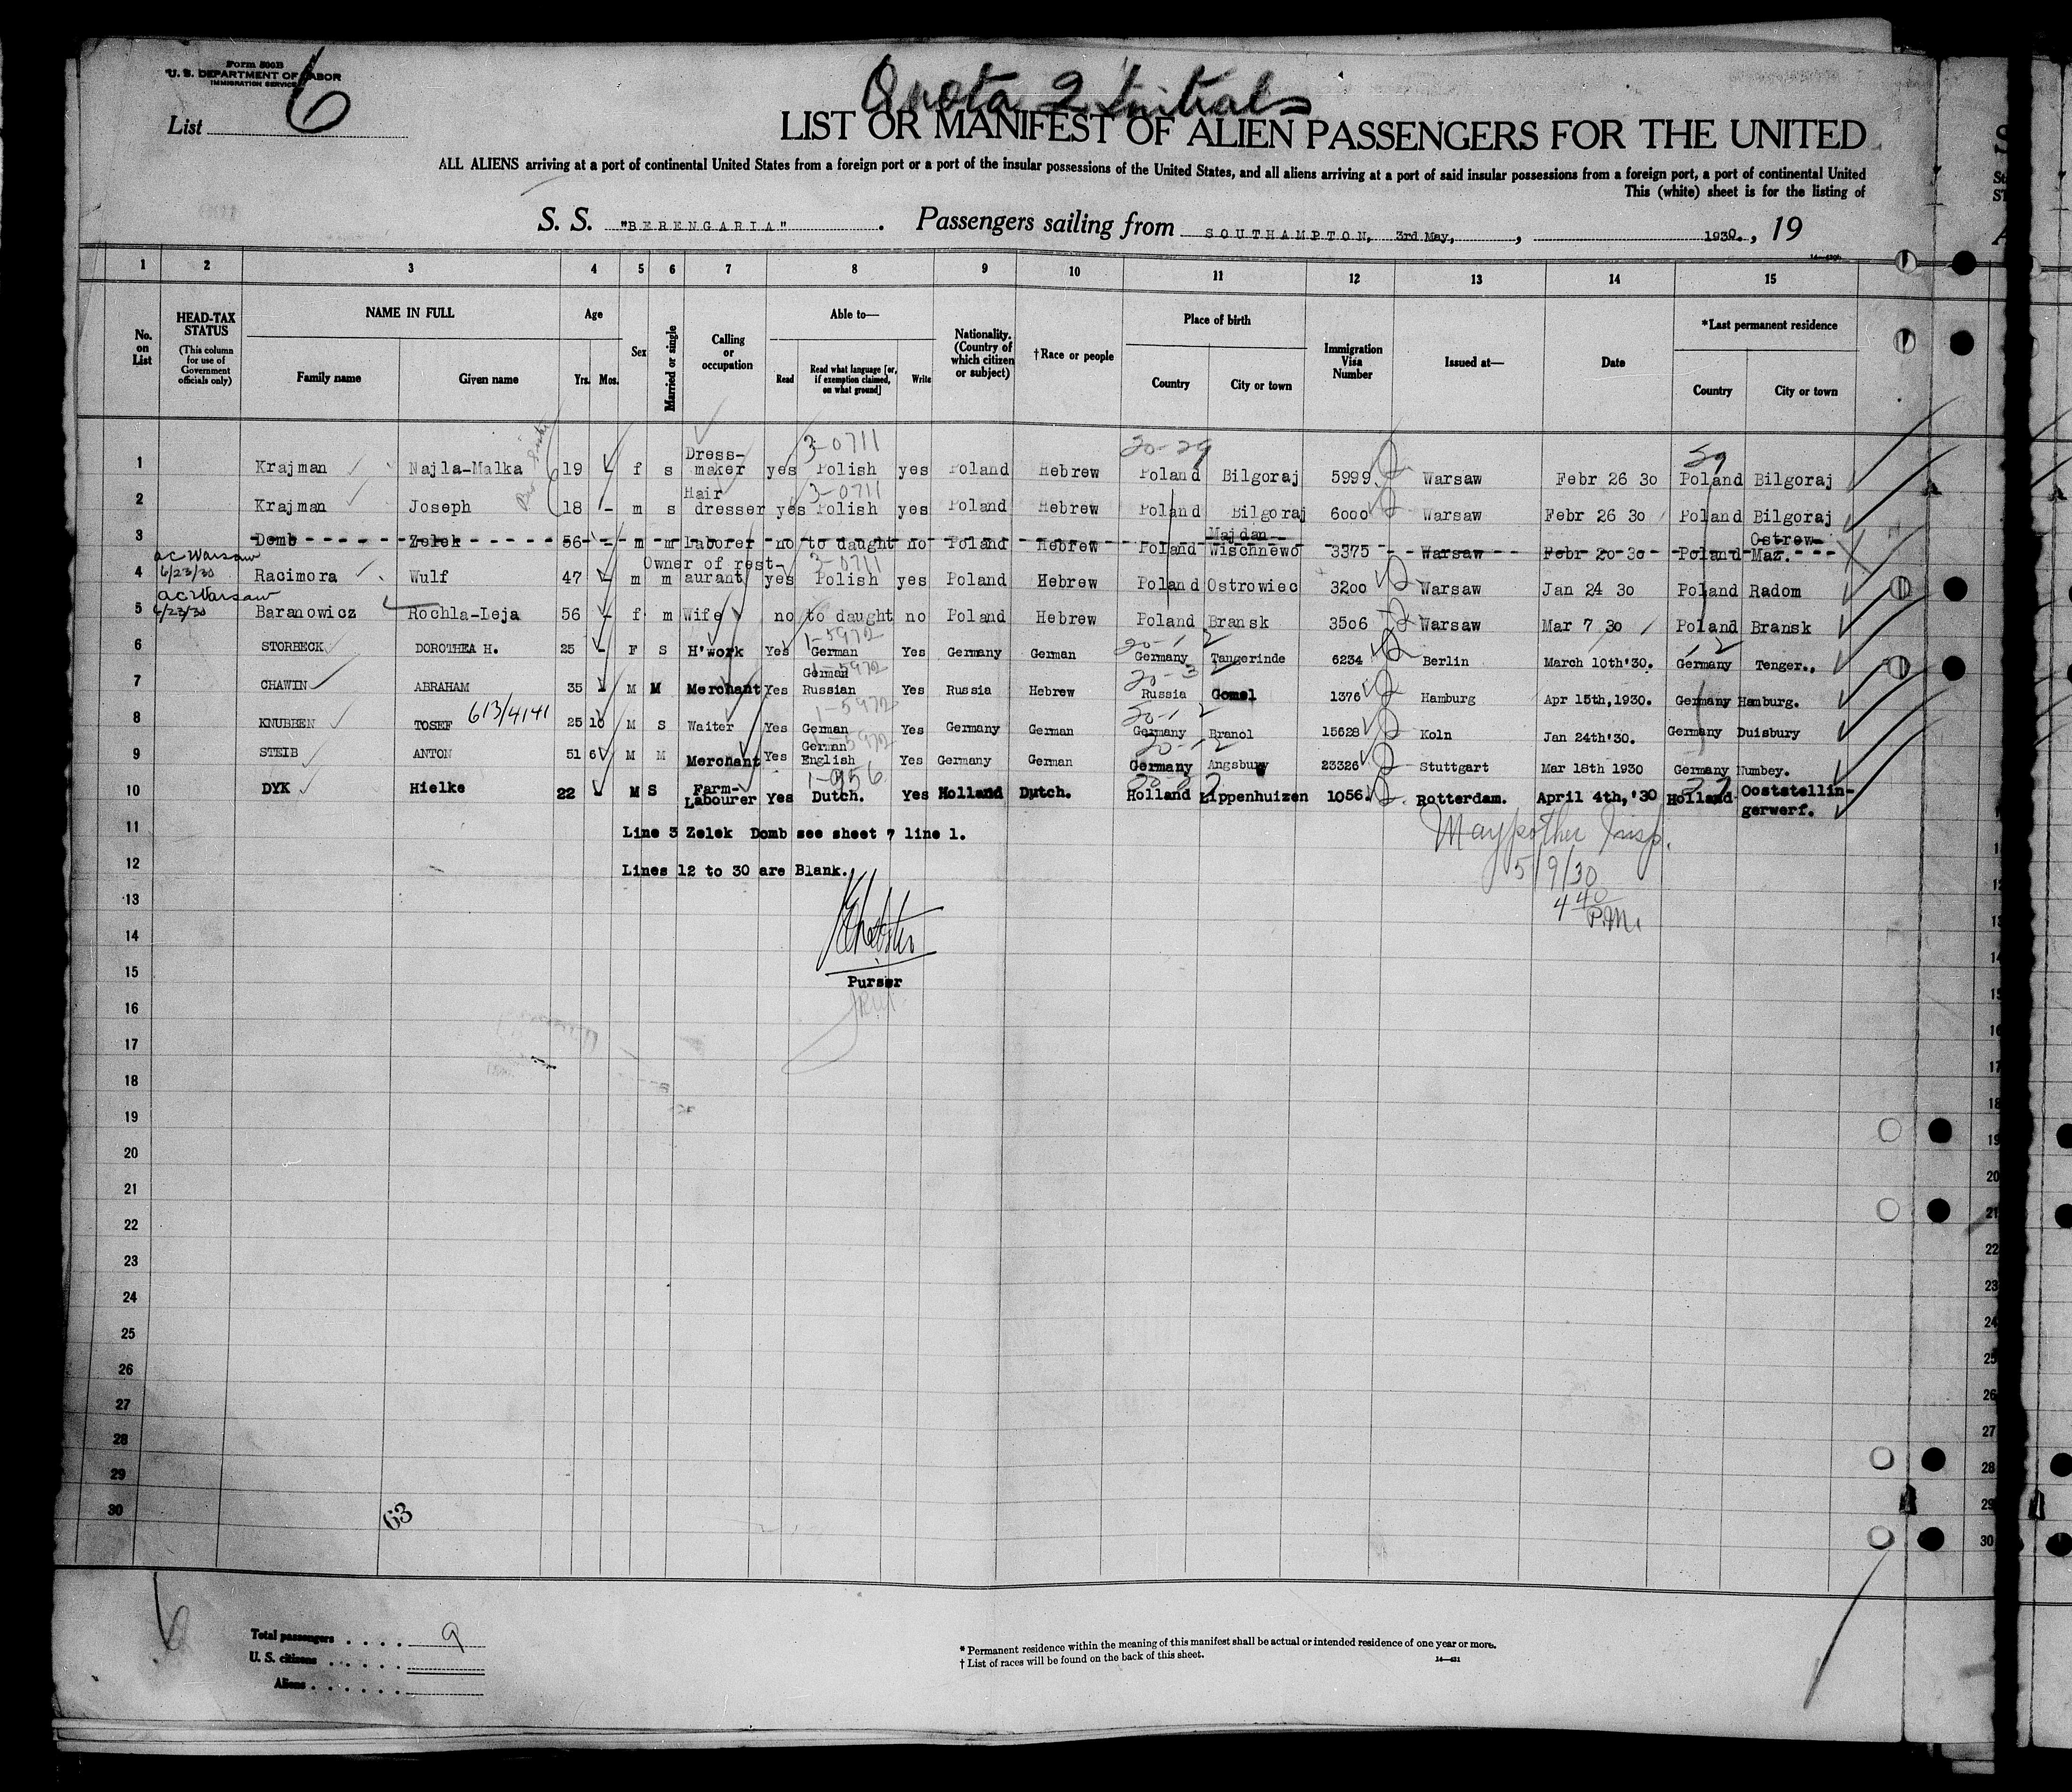 Form 500B
U. S. DEPARTMENT OF LABOR
IMMIGRATION SERVICE
List 6
Quota 2 Initials
LIST OR MANIFEST OF ALIEN PASSENGERS FOR THE UNITED
ALL ALIENS arriving at a port of continental United States from a foreign port or a port of the insular possessions of the United States, and all aliens arriving at a port of said insular possessions from a foreign port, a port of continental United
This (white) sheet is for the listing of
S. S. "BERENGARIA" . Passengers sailing from SOUTHAMPTON, 3rd May, , 1930. , 19
1 2 3 4 5 6 7 8 9 10 11 12 13 14 15
No. on List
HEAD-TAX STATUS
(This column for use of Government officials only)
NAME IN FULL
Family name Given name
Age
Yrs. Mos.
Sex
Married or single
Calling or occupation
Able to—
Read Read what language [or, if exemption claimed, on what ground] Write
Nationality. (Country of which citizen or subject)
†Race or people
Place of birth
Country City or town
Immigration Visa Number
Issued at—
Date
*Last permanent residence
Country City or town
3-0711 20-29 59
1 Krajman Najla-Malka 19 - f s Dress-maker yes Polish yes Poland Hebrew Poland Bilgoraj 5999 Warsaw Febr 26 30 Poland Bilgoraj
3-0711
2 Krajman Joseph 18 - m s Hair dresser yes Polish yes Poland Hebrew Poland Bilgoraj 6000 Warsaw Febr 26 30 Poland Bilgoraj
3 Domb Zelek 56 - m m laborer no to daught no Poland Hebrew Poland Majdan Wischnewo 3375 Warsaw Febr 20 30 Poland Ostrew Maz.
ac Warsaw 6/23/30 3-0711
4 Racimora Wulf 47 - m m Owner of rest-aurant yes Polish yes Poland Hebrew Poland Ostrowiec 3200 Warsaw Jan 24 30 Poland Radom
ac Warsaw 6/23/30
5 Baranowicz Rochla-Leja 56 - f m Wife no to daught no Poland Hebrew Poland Bransk 3506 Warsaw Mar 7 30 Poland Bransk
1-5972 20-1 2
6 STORBECK DOROTHEA H. 25 - F S H'work Yes German Yes Germany German Germany Tangerinde 6234 Berlin March 10th'30. Germany Tenger.
1-5972 20-3 2
7 CHAWIN ABRAHAM 35 - M M Merchant Yes German Russian Yes Russia Hebrew Russia Gomel 1376 Hamburg Apr 15th,1930. Germany Hamburg.
613/4141 1-5972 20-1 2
8 KNUBBEN TOSEF 25 10 M S Waiter Yes German Yes Germany German Germany Branol 15628 Koln Jan 24th'30. Germany Duisbury
1-5972 20-1 2
9 STEIB ANTON 51 6 M M Merchant Yes German English Yes Germany German Germany Angsburg 23326 Stuttgart Mar 18th 1930 Germany Numbey.
1-956
10 DYK Hielke 22 M S Farm-Labourer Yes Dutch. Yes Holland Dutch. Holland Lippenhuizen 1056. Rotterdam. April 4th,'30 Holland Ooststellin-gerwerf.
11 Line 3 Zelek Domb see sheet 7 line 1.
12 Lines 12 to 30 are Blank.
Insp.
5/9/30
4 40 P.M.
13
14
15
Purser
16
17
18
19
20
21
22
23
24
25
26
27
28
29
30
63
Total passengers . . . . 9
U. S. citizens . . . . . .
Aliens . . . . . .
* Permanent residence within the meaning of this manifest shall be actual or intended residence of one year or more.
† List of races will be found on the back of this sheet.
14—431